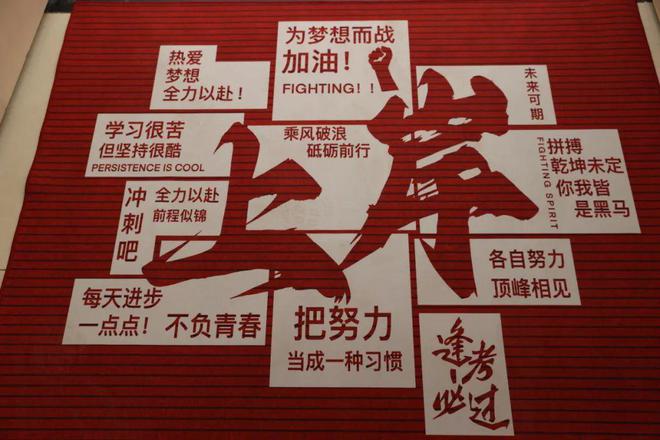 为梦想而战
加油！
FIGHTING！！
热爱
梦想
全力以赴！
未来可期
学习很苦
但坚持很酷
PERSISTENCE IS COOL
乘风破浪
砥砺前行
上岸
拼搏
乾坤未定
你我皆
是黑马
FIGHTING SPIRIT
冲刺吧
全力以赴
前程似锦
各自努力
顶峰相见
每天进步
一点点！不负青春
把努力
当成一种习惯
逢考
必过